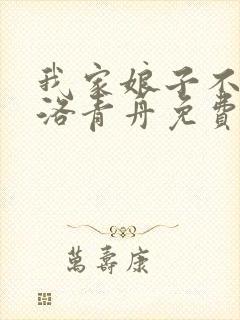 我家娘子不
洛青丹免費
萬壽康